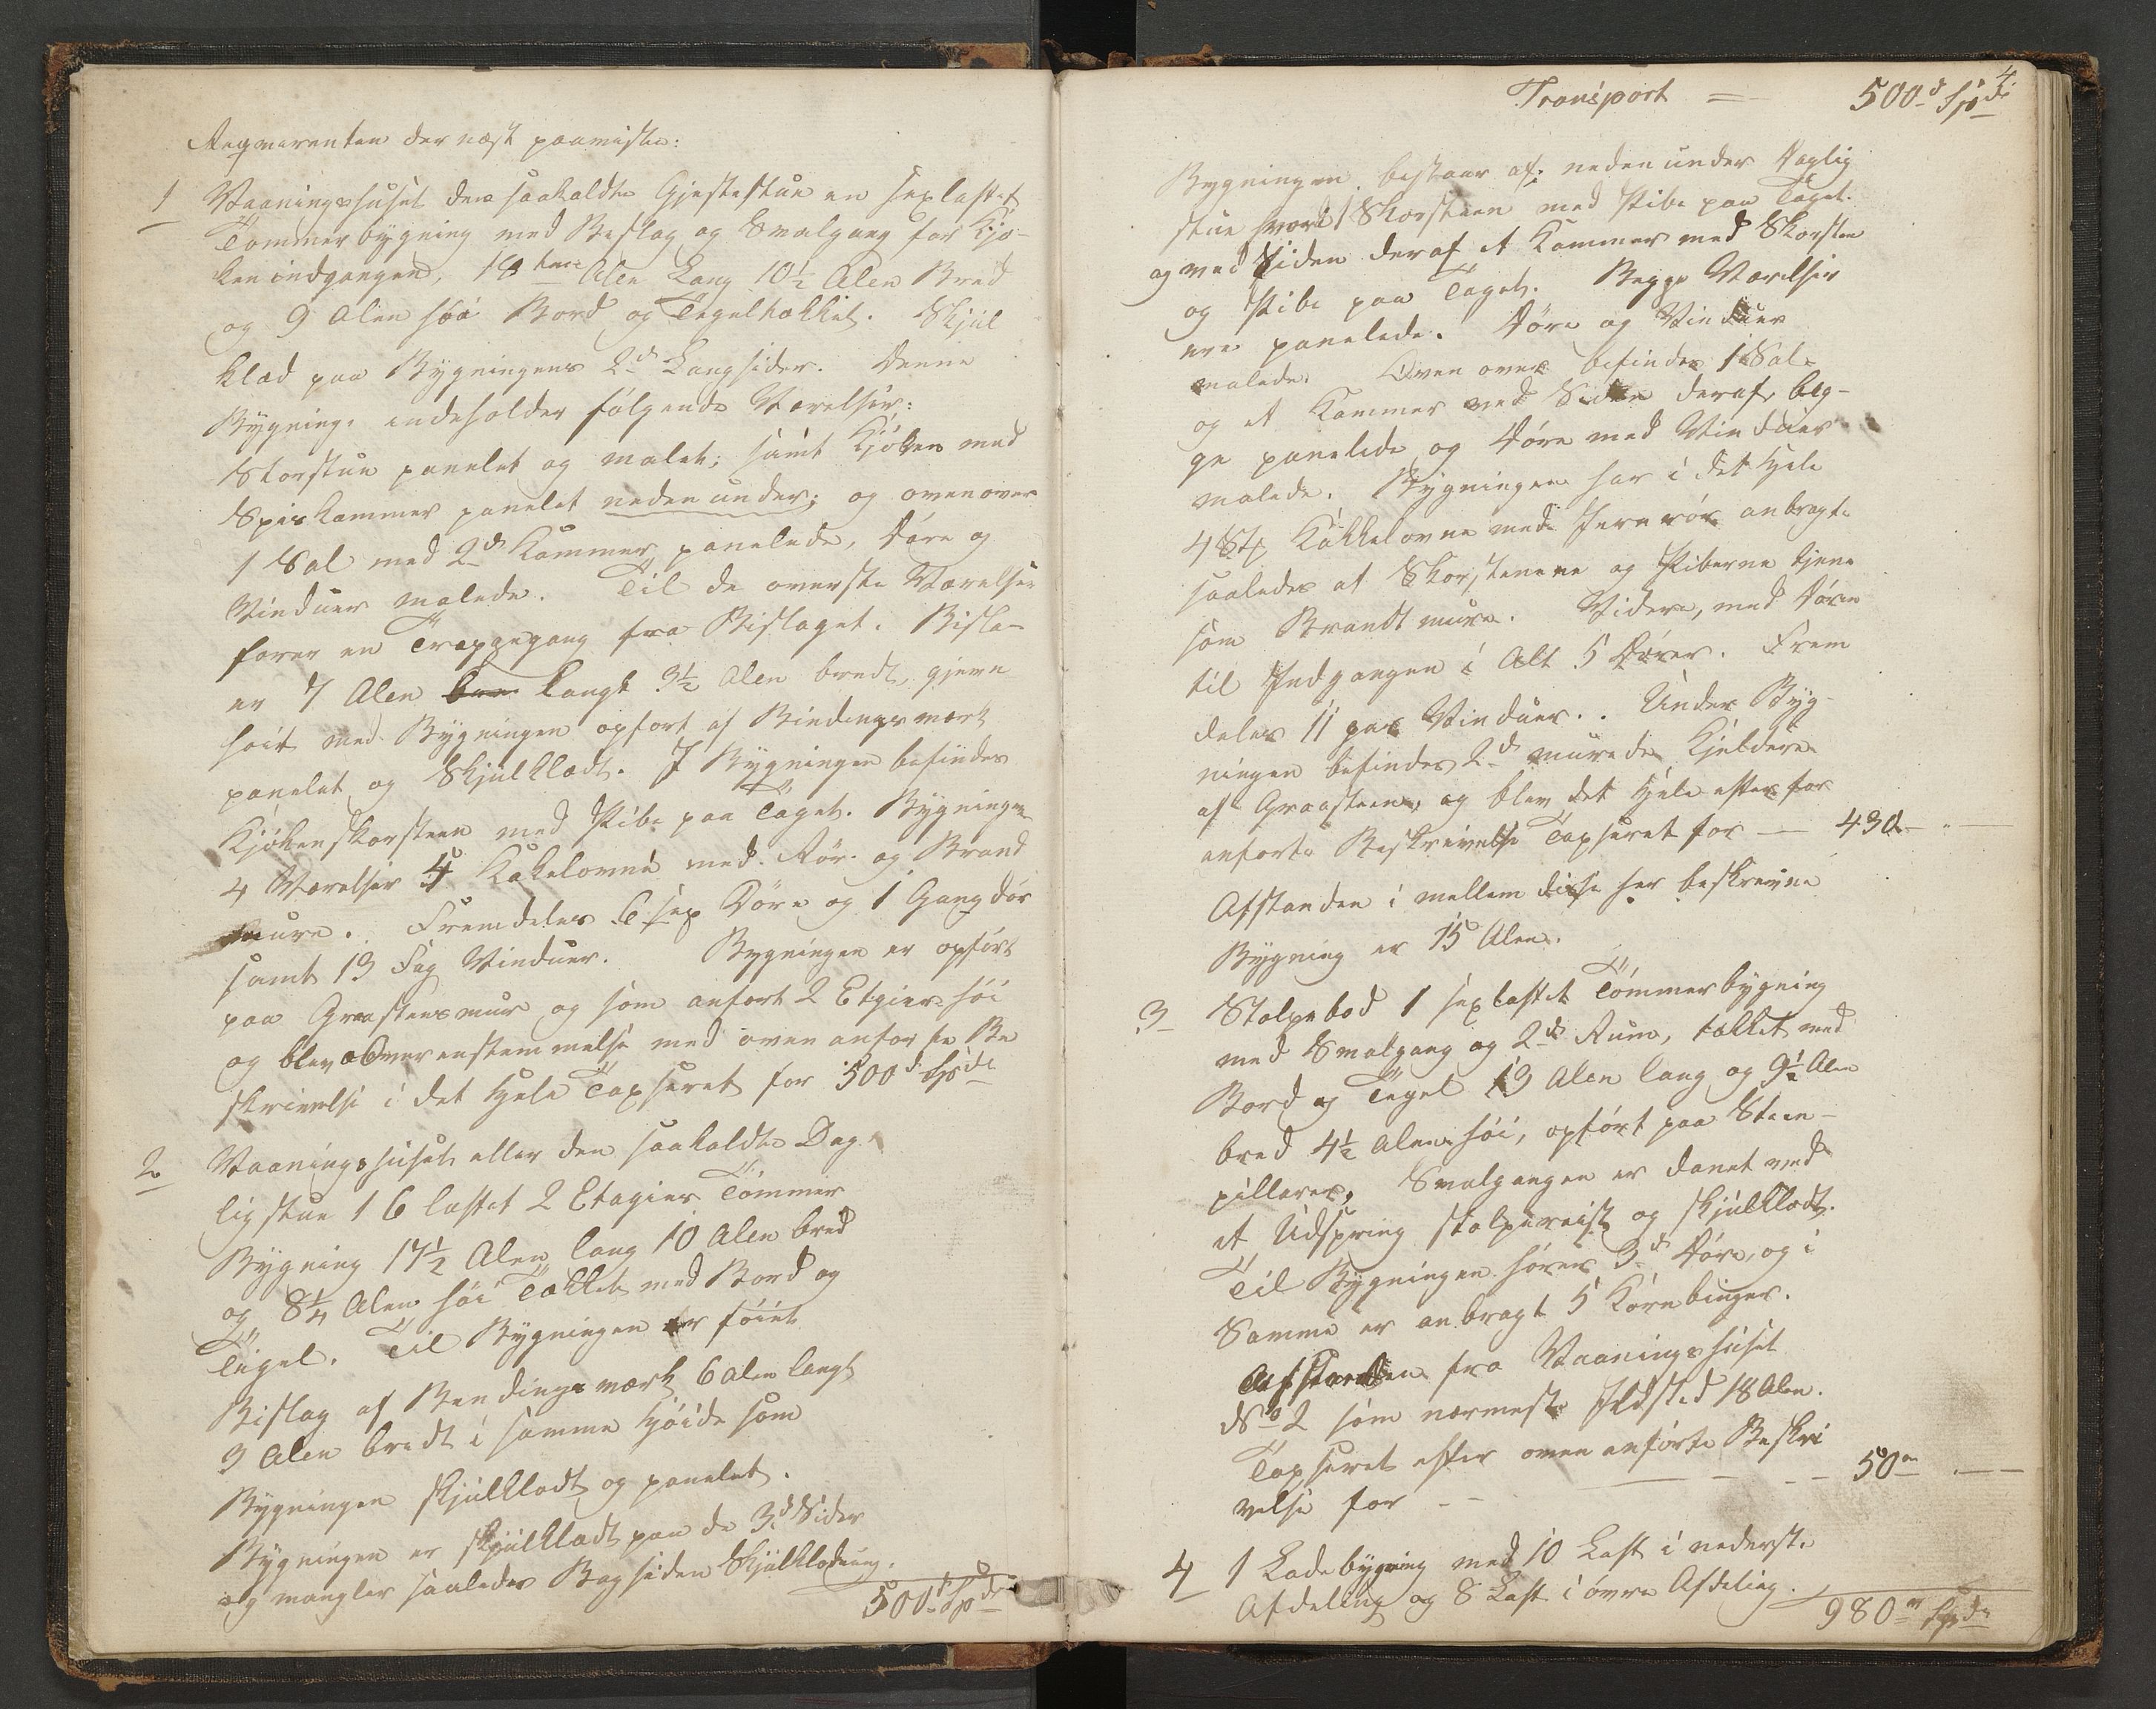 Reqvirenten der næst paaviste:
1 Vaaningshuset den saakaldte Gjestestue en sexlastet
Tømmerbygning med Beslag og Svalgang for Kjø-
ken indgangen, 18 Alen Lang 10½ Alen Bred
og 9 Alen høi Bord og Tegeltækket. Skjul
klæd paa Bygningens 2de Langsider. Denne
Bygning indeholder følgende Værelser:
Storstue panelet og malet; samt Kjøken med
Spiskammer panelet nedenunder; og ovenover
1 Sal med 2de Kammer panelede, Døre og
Vinduer malede. Til de øverste Værelser
fører en Trappegang fra Bislaget. Bisla-
er 7 Alen langt 3½ Alen bredt, gjevn
høit med Bygningen opført af Bindingsværk
panelet og Skjulklædt. I Bygningen befindes
Kjøkenskorsteen med Pibe paa Taget. Bygningen
4 Værelser 4 Kakelovne med Rør og Brand
muure. Fremdeles 6 sex Døre og 1 Gangdør
samt 13 Fag Vinduer. Bygningen er opført
paa Graasteensmuur og som anført 2 Etagier høi
og blev i Overenstemmelse med ovenanførte Be
skrivelse i det Hele Taxseret for 500d Spdr
2 Vaaningshuset eller den saakaldte Dag-
ligstue 1 6 lastet 2 Etagies Tømmer
Bygning 17½ Alen lang 10 Alen bred
og 8¼ Alen høi Tækket med Bord og
Tegel. Til Bygningen er føiet
Bislag af Bendingsværk 6 Alen langt
3 Alen bredt i samme Høide som
Bygningen skjulklædt og panelet.
Bygningen er skjulklædt paa de 3de Sider
og mangler saaledes Bagsiden Skjulklædning.
500d Spdr
4
Transport = 500d Spdr
Bygningen bestaar af: nedenunder Daglig
stue hvori 1 Skorsteen med Pibe paa Taget.
og ved Siden deraf et Kammer med Skorsten
og Pibe paa Taget. Begge Værelser
ere panelede. Døre og Vinduer
malede. Oven over befindes 1 Sal
og et Kammer ved Siden deraf, beg-
ge panelede og Døre med Vinduer
malede. Bygningen har i det Hele
4 Stk Kakkelovne med Jernrør anbragte
saaledes at Skorstenene og Piberne tjene
som Brandtmure. Videre, med Døren
til Indgangen i Alt 5 Døre. Frem
deles 11 par Vinduer. Under Byg-
ningen befindes 2de murede Kjeldere
af Graasteen, og blev det Hele efter for
anførte Beskrivelse Taxseret for — 430 - " —
Afstanden i mellem disse her beskrevne
Bygning er 15 Alen.
3 Stolpebod 1 sexlastet Tømmerbygning
med Svalgang og 2de Rum, tækket med
Bord og Tegel 13 Alen lang og 9½ Alen
bred 4½ Alen høi, opført paa Steen-
pillarer. Svalgangen er danet ved
et Udspring stolpereist og skjulklædt.
Til Bygningen hører 3de Døre, og i
Samme er anbragt 5 Kornbinger.
Afstanden fra Vaaningshuset
No 2 som nærmeste Ildsted 18 Alen.
Taxseret efter ovenanførte Beskri
velse for - - — - - - 50 - —
4 1 Ladebygning med 10 Last i nederste
Afdeling og 8 Last i øvre Afdeling.
980 Spdr